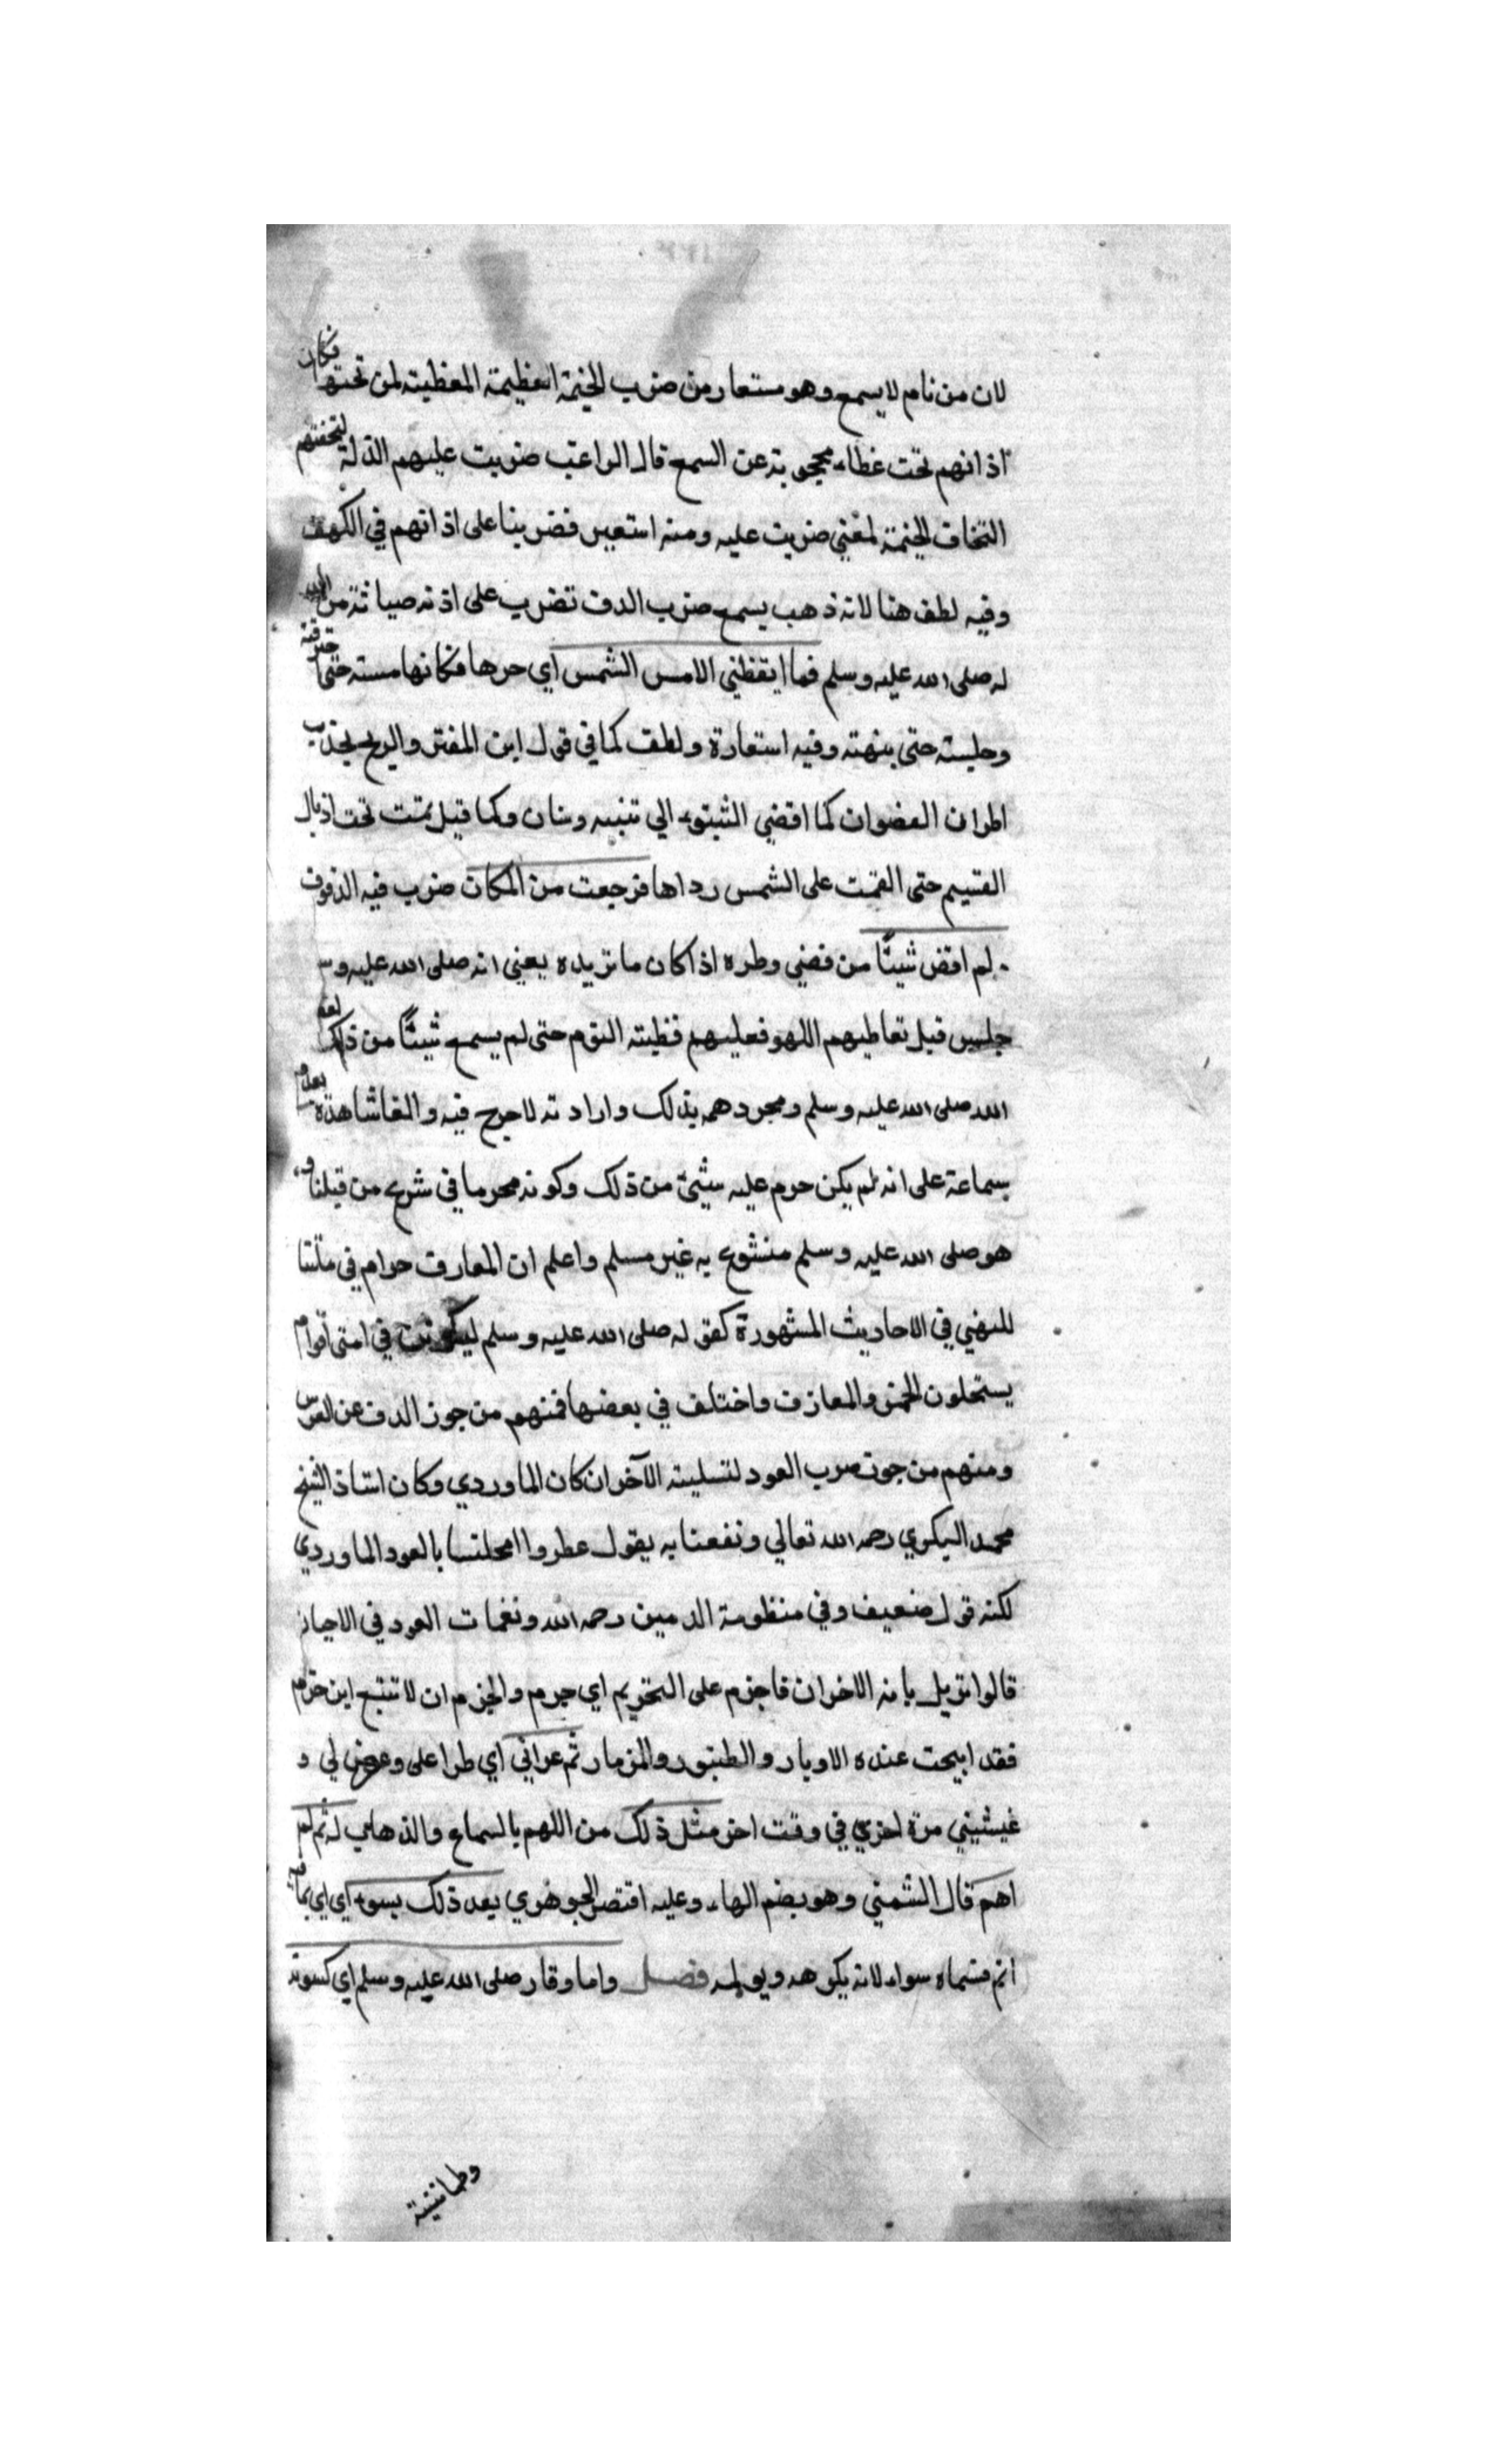 لان من نام لا يسمع وهو مستعار من ضرب الخيمة العظيمة المغطية لمن تحتها فكان
اذانهم تحت غطاء محجوبة عن السمع قال الراغب ضربت عليهم الذلة لتحفتهم
التحاف الخيمة لمغني ضربت عليه ومنه استعير فضربنا على اذانهم في الكهف
وفيه لطف هنا لانه ذهب يسمع ضرب الدف تضرب على اذنه صيانة من
له صلى الله عليه وسلم فما ايقظني الا مس الشمس اي حرها فكانها مسته حتى
وجلسته حتى بنهته وفيه استعارة ولطف كما في قول ابن المفتر والريح تجذب
اطران الغضوان كما اقضي الشبتوء الي تنبيه وسنان وكما قيل نمت تحت اذيال
القسيم حتى القمت على الشمس رداها فرجعت من المكان ضرب فيه الدفوف
لم اقض شيئا من قضي وطره اذا كان ما تريده يعني انه صلى الله عليه وس
جلس قبل تعاطيهم اللهو فعليهم فظيته النوم حتى لم يسمع شيئا من ذلك
الله صلى الله عليه وسلم ومجرد همه بذلك وارادته لا حرج فيه والغا شاهدة
سماعة على انه لم يكن حرم عليه شيئ من ذلك وكونه محرما في شرع من قبلنا و
هو صلى الله عليه وسلم منشوع به غير مسلم واعلم ان المعارف حرام في ملتنا
للنهي في الاحاديث المشهورة كقوله صلى الله عليه وسلم ليكونن في امتي اقوام
يستحلون الخمر والمعازف واختلف في بعضها فمنهم من جوز الدف عن العرس
ومنهم من جوز ضرب العود لتسلية الآخران كان الماوردي وكان استاذ الشيخ
محمد البكري رحمه الله تعالي ونفعنا به يقول عطروا امجلسنا بالعود الماوردي
لكنه قول ضعيف وفي منظومة الدمين رحمه الله ونغمات العود في الاحيان
قالوا تزيل بامنه الاخران فاجزم على التحريم اي جرم والجزم ان لا تتبع ابن حزم
فقد ابيحت عنده الاوبار والطنبور والمزمار ثم عراني اي طرا على وعرض لي و
غيشيني مرة اخري في وقت اخر مثل ذلك من اللهم بالسماع والذهاب له ثم لم
اهم قال الشمني وهو بضم الهاء وعليه اقتصر الجوهري بعد ذلك بسوء اي اي بما
اثم فشماه سواء لانه يكوهه ويولمه فصل واما وقار صلى الله عليه وسلم اي كسونه
وطمانينة